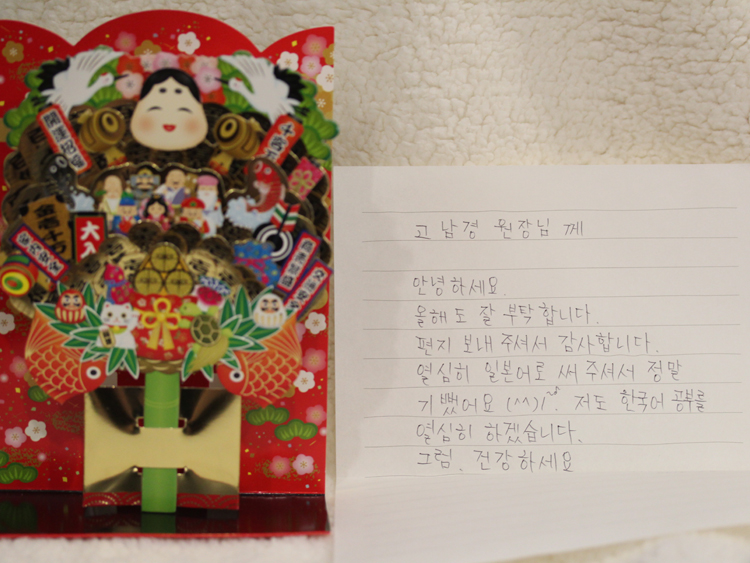 開運招福
千客万
大入
고남경 원장님 께
안녕하세요.
올해도 잘 부탁합니다.
편지 보내 주셔서 감사합니다.
열심히 일본어로 써 주셔서 정말
기뻤어요 (^^)/♪. 저도 한국어 공부를
열심히 하겠습니다.
그럼. 건강하세요